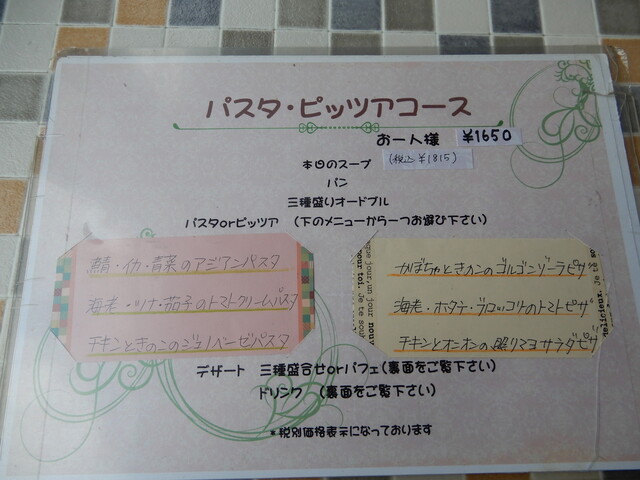 パスタ・ピッツアコース
お一人様 ¥1650
本日のスープ (税込¥1815)
パン
三種盛りオードブル
パスタorピッツア (下のメニューから一つお選び下さい)
鯖・イカ・青菜のアジアンパスタ
海老・ツナ・茄子のトマトクリームパスタ
チキンときのこのジェノベーゼパスタ
かぼちゃときのこのゴルゴンゾーラピザ
海老・ホタテ・ブロッコリのトマトピザ
チキンとオニオンの照リマヨサラダピザ
デザート 三種盛合せorパフェ(裏面をご覧下さい)
ドリンク (裏面をご覧下さい)
*税別価格表示になっております